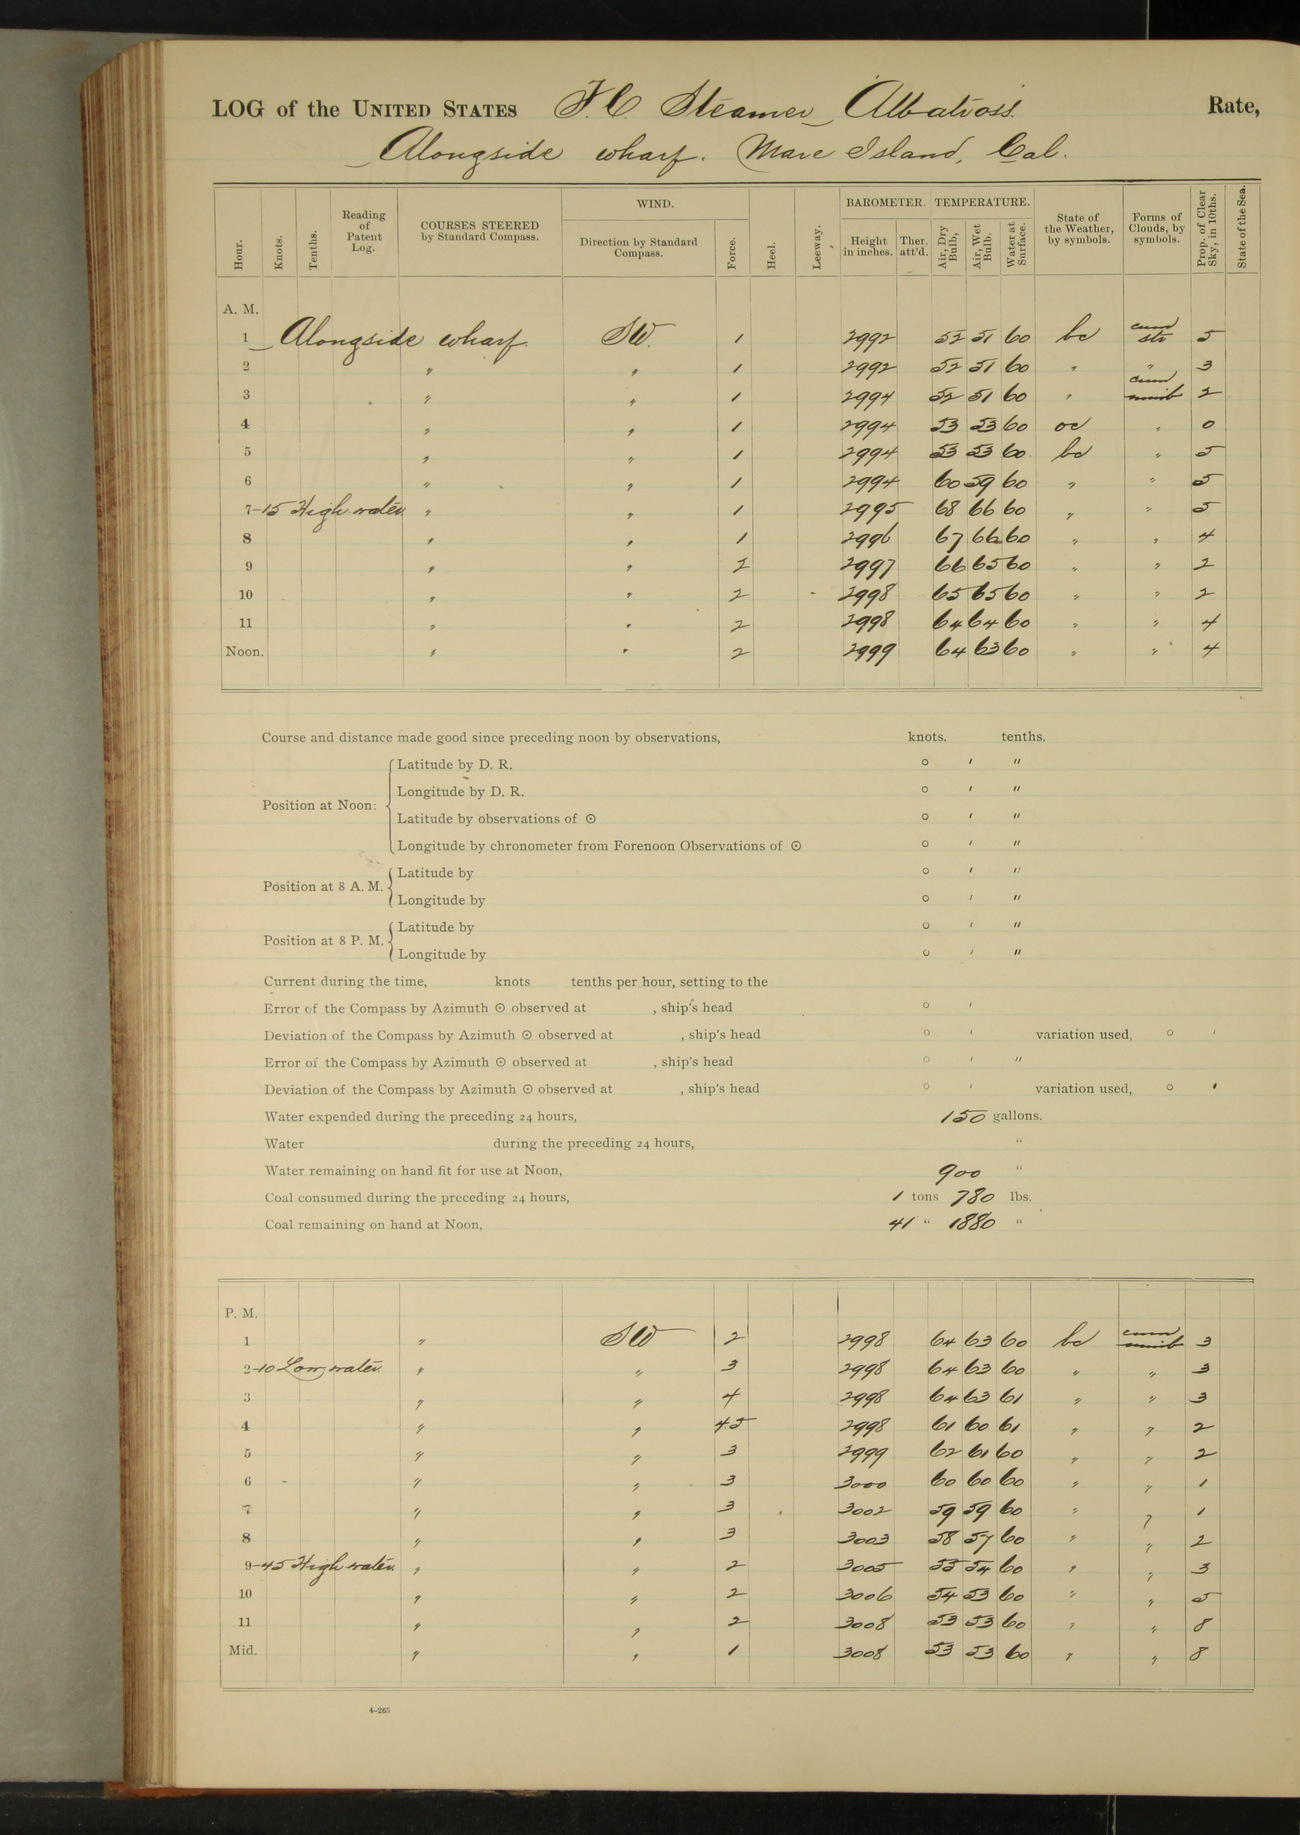 LOG of the UNITED STATES F. C. Steamer Albatross Rate,
Alongside wharf. Mare Island, Cal.
Hour. Knots. Tenths. Reading of Patent Log. COURSES STEERED by Standard Compass. WIND. Direction by Standard Compass. Force. Heel. Leeway. BAROMETER. Height in inches. Ther. att'd. TEMPERATURE. Air, Dry Bulb, Air, Wet Bulb. Water at Surface. State of the Weather, by symbols. Forms of Clouds, by symbols. Prop. of Clear Sky, in 10ths. State of the Sea.
A. M.
1 Alongside wharf. SW. 1 2992 52 51 60 bc cum str 5
2 " " 1 2992 52 51 60 " " 3
3 " " 1 2994 52 51 60 " cum nimb 2
4 " " 1 2994 53 53 60 oc " 0
5 " " 1 2994 53 53 60 bc " 5
6 " " 1 2994 60 59 60 " " 5
7-15 High water. " " 1 2995 68 66 60 " " 5
8 " " 1 2996 67 66 60 " " 4
9 " " 2 2997 66 65 60 " " 2
10 " " 2 2998 65 65 60 " " 2
11 " " 2 2998 64 64 60 " " 4
Noon. " " 2 2999 64 63 60 " " 4
Course and distance made good since preceding noon by observations, knots. tenths.
Position at Noon: Latitude by D. R. ° ' "
Longitude by D. R. ° ' "
Latitude by observations of ☉ ° ' "
Longitude by chronometer from Forenoon Observations of ☉ ° ' "
Position at 8 A. M. Latitude by ° ' "
Longitude by ° ' "
Position at 8 P. M. Latitude by ° ' "
Longitude by ° ' "
Current during the time, knots tenths per hour, setting to the
Error of the Compass by Azimuth ☉ observed at , ship's head ° '
Deviation of the Compass by Azimuth ☉ observed at , ship's head ° ' variation used, ° '
Error of the Compass by Azimuth ☉ observed at , ship's head ° ' "
Deviation of the Compass by Azimuth ☉ observed at , ship's head ° ' variation used, ° '
Water expended during the preceding 24 hours, 150 gallons.
Water during the preceding 24 hours, "
Water remaining on hand fit for use at Noon, 900 "
Coal consumed during the preceding 24 hours, 1 tons 780 lbs.
Coal remaining on hand at Noon, 41 " 1880 "
P. M.
1 " SW 2 2998 64 63 60 bc cum nimb 3
2-10 Low water. " " 3 2998 64 63 60 " " 3
3 " " 4 2998 64 63 61 " " 3
4 " " 4.5 2998 61 60 61 " " 2
5 " " 3 2999 62 61 60 " " 2
6 " " 3 3000 60 60 60 " " 1
7 " " 3 3002 59 59 60 " " 1
8 " " 3 3003 58 57 60 " " 2
9-45 High water. " " 2 3005 55 54 60 " " 3
10 " " 2 3006 54 53 60 " " 5
11 " " 2 3008 53 53 60 " " 8
Mid. " " 1 3008 53 53 60 " " 8
4-265